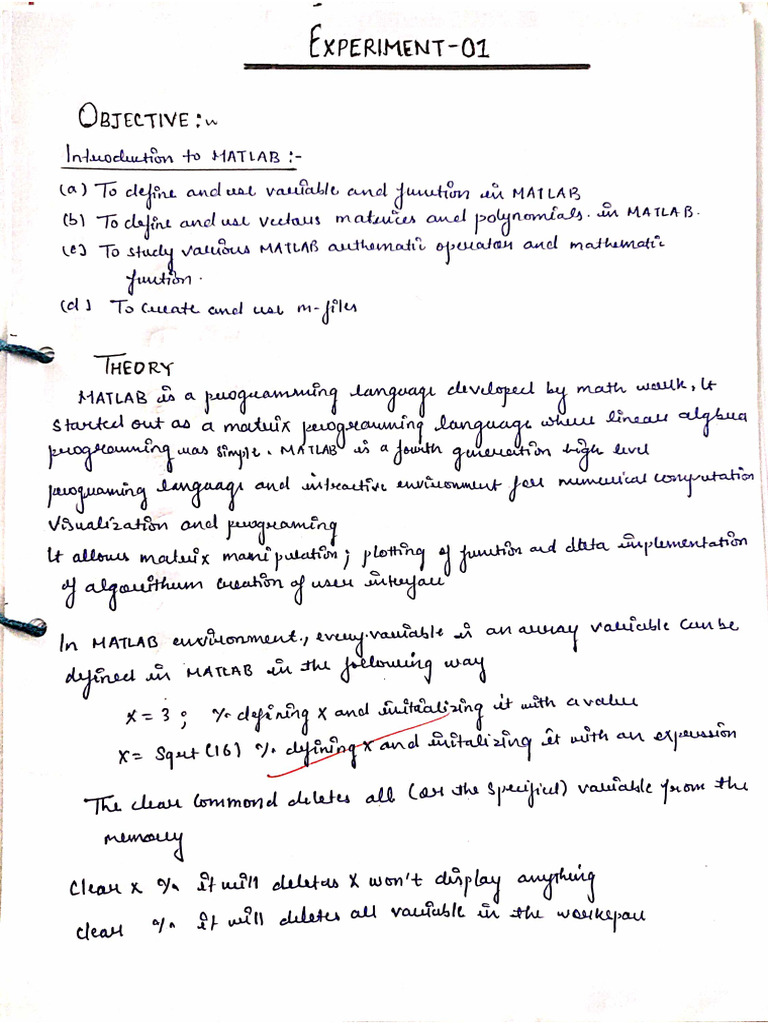 EXPERIMENT-01
OBJECTIVE:~
Introduction to MATLAB :-
(a) To define and use variable and function in MATLAB
(b) To define and use vectors matrices and polynomials. in MATLAB.
(c) To study various MATLAB arithmatic operator and mathematic
function.
(d) To create and use m-files
THEORY
MATLAB is a programming language developed by math work, It
started out as a matrix programming language where linear algbra
programming was simple. MATLAB is a fourth generation high level
programing language and intractive environment for numerical computation
visualization and programing
It allows matrix manipulation; plotting of function and data implementation
of algorithum creation of user interface
In MATLAB environment, every variable is an array variable can be
defined in MATLAB in the following way
x = 3 ; % defining x and initializing it with a value
x = Sqrt (16) % defining x and initalizing it with an expression
The clear commond deletes all (or the specified) variable from the
memory
Clear x % it will deletes x won't display anything
clear % it will deletes all variable in the workspace